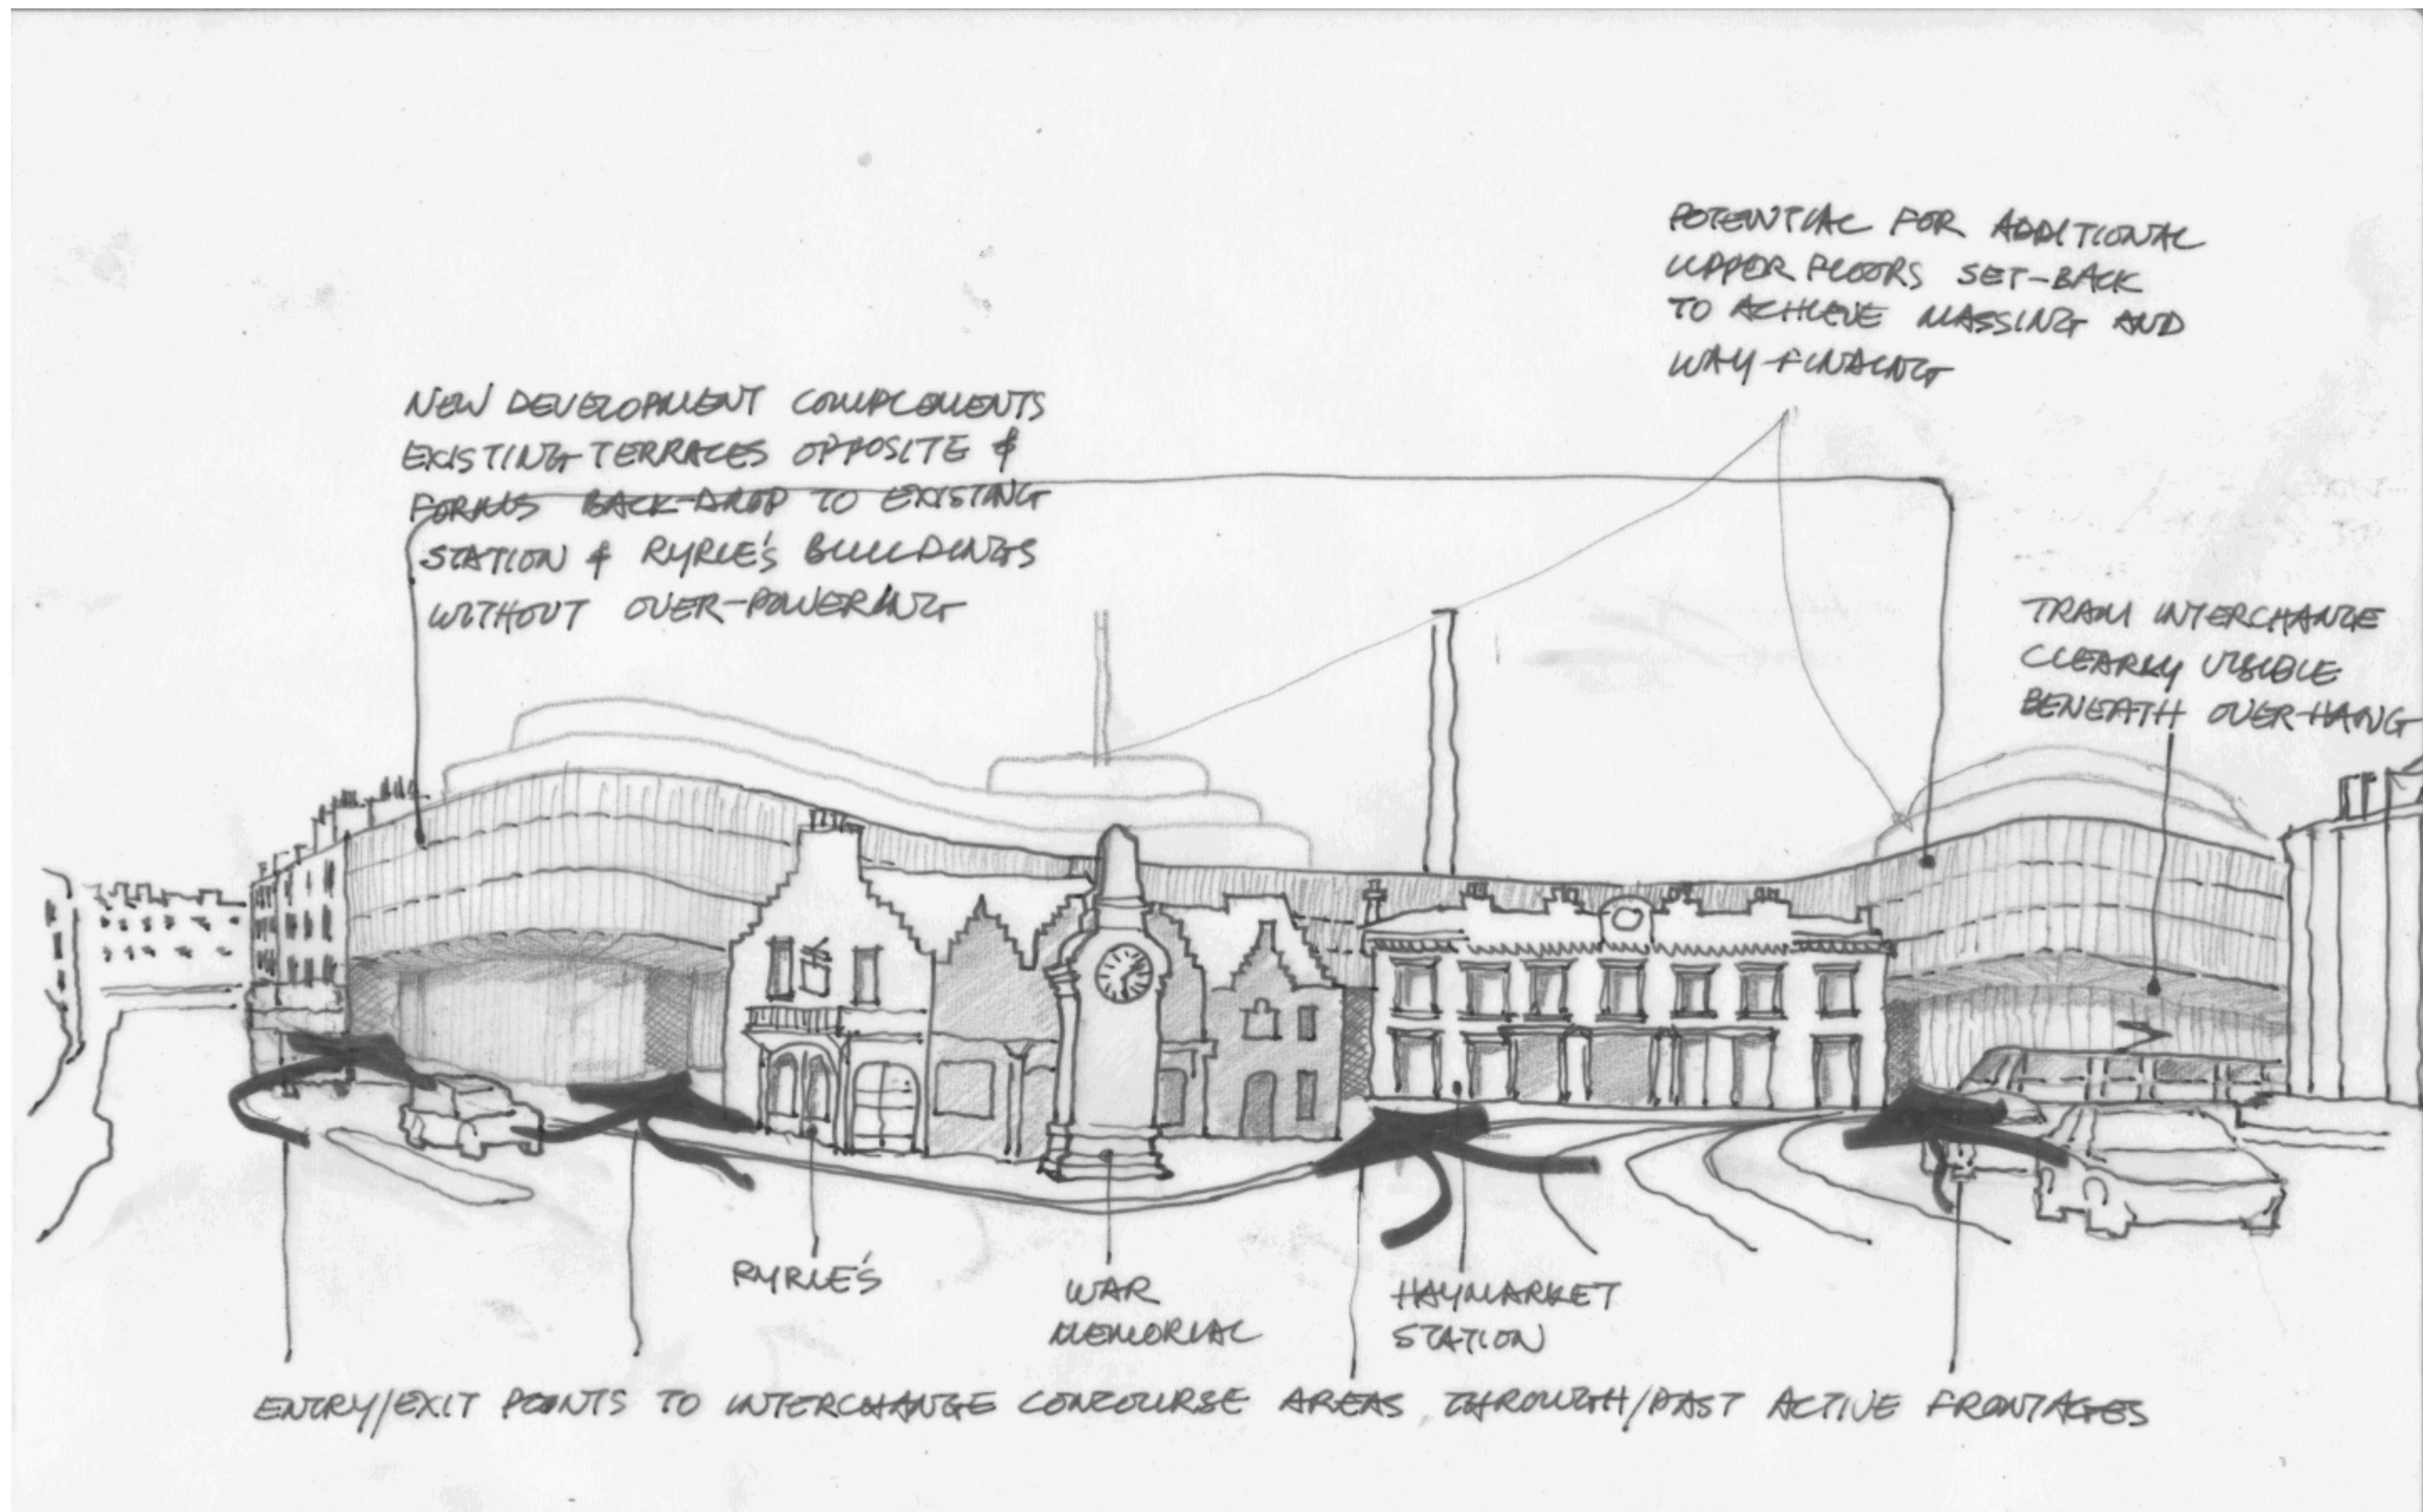 POTENTIAL FOR ADDITIONAL
UPPER FLOORS SET-BACK
TO ACHIEVE MASSING AND
WAY-FINDING
NEW DEVELOPMENT COMPLEMENTS
EXISTING TERRACES OPPOSITE &
FORMS BACK-DROP TO EXISTING
STATION & RYRIE'S BUILDINGS
WITHOUT OVER-POWERING
TRAM INTERCHANGE
CLEARLY VISIBLE
BENEATH OVER-HANG
RYRIE'S
WAR
MEMORIAL
HAYMARKET
STATION
ENTRY/EXIT POINTS TO INTERCHANGE CONCOURSE AREAS THROUGH/PAST ACTIVE FRONTAGES